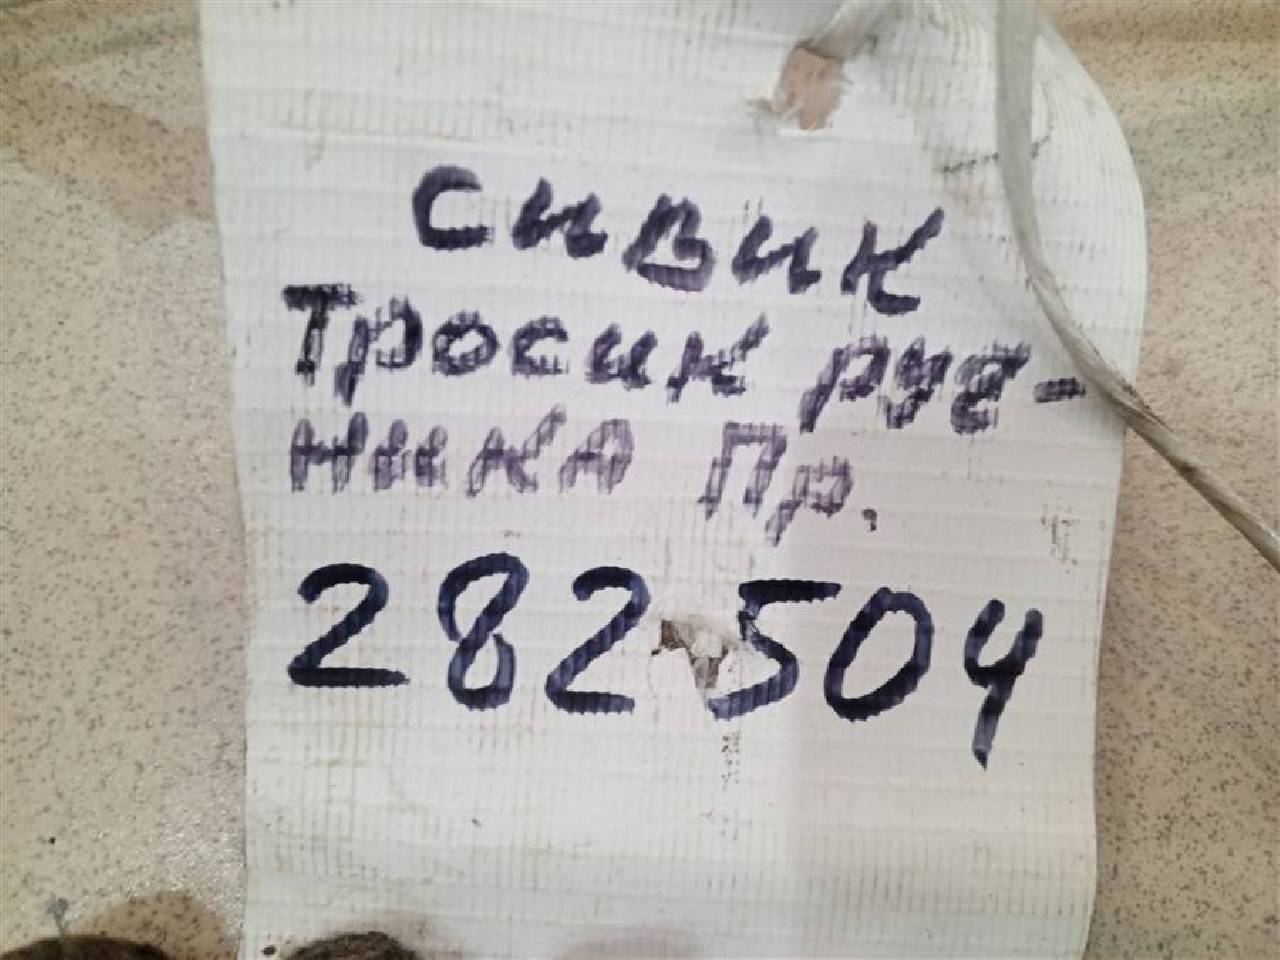 Сивик
Тросик руч-
ника Пр.
282504